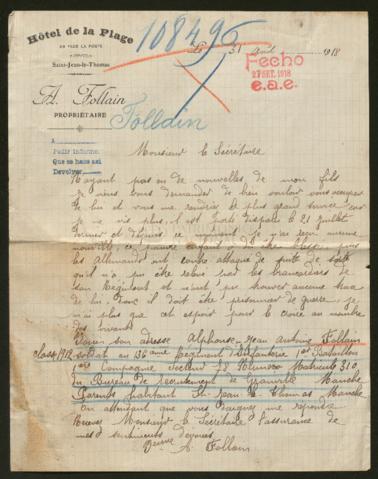 Hôtel de la Plage
EN FACE LA POSTE
Saint-Jean-le-Thomas
A. Follain
PROPRIÉTAIRE
108495
Le 31 août 1918
Fecho
27 SET. 1918
e.a.e.
Follain
A
Pedir informe
Que se hace asi
Devolver
Monsieur le Secrétaire
N'ayant pas eu de nouvelles de mon fils
je viens vous demander de bien vouloir vous occuper
de lui et vous me rendriez le plus grand service car
je ne vis plus, il est porté disparu le 21 Juillet
dernier et depuis ce moment je n'ai reçu aucune
nouvelle, ce pauvre enfant a dû être blessé puis
les Allemands ont contre attaqué de suite de sorte
qu'il n'a pu être relevé par les brancardiers de
son Régiment et n'ont pu trouver aucune trace
de lui. Donc il doit être prisonnier de guerre je
n'ai plus que cet espoir pour le croire au nombre
des vivants
son adresse Alphonse Jean Antoine Follain
classe 1912 soldat au 36ème Régiment d'Infanterie 1er Bataillon
1ère Compagnie Secteur 78 Numéro Matricule 310
du Bureau de recrutement de Granville Manche
Parents habitant St Jean le Thomas Manche
En attendant que vous daignez me répondre
Recevez Monsieur le Secrétaire l'assurance de
mes sentiments dévoués
Veuve A. Follain